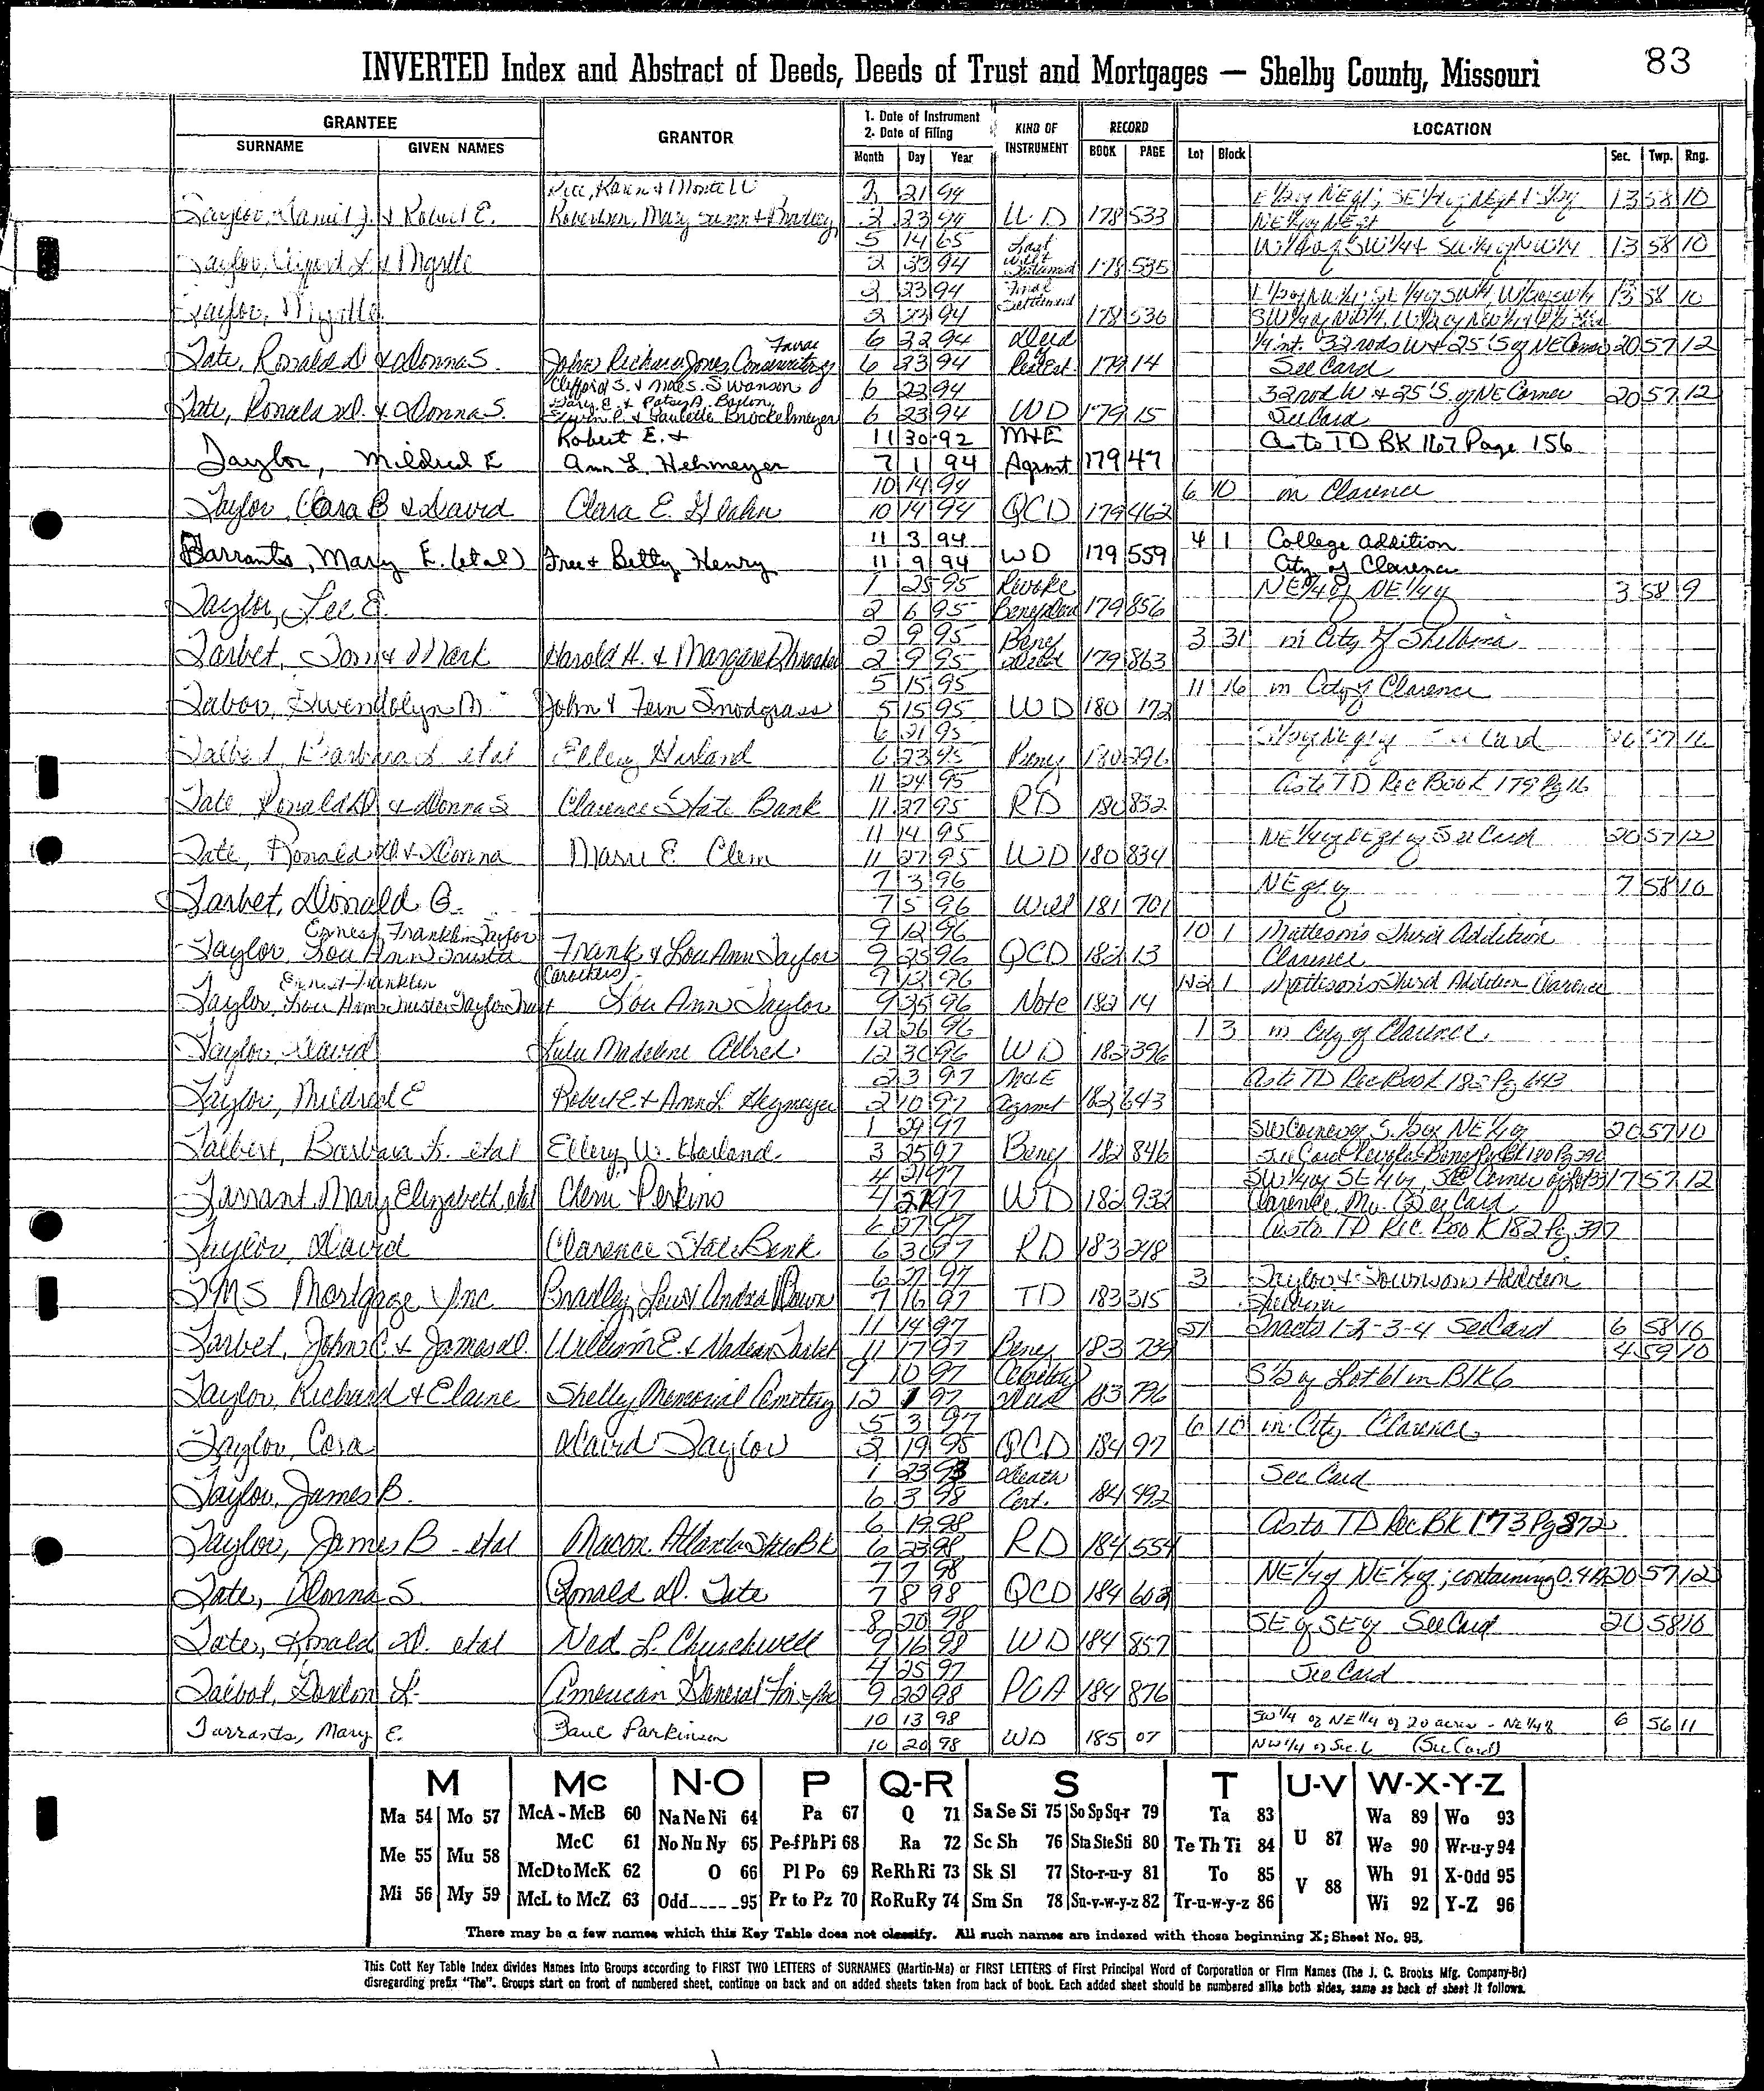 83
INVERTED Index and Abstract of Deeds, Deeds of Trust and Mortgages — Shelby County, Missouri
GRANTEE
SURNAME GIVEN NAMES
GRANTOR
1. Date of Instrument
2. Date of Filing
Month Day Year
KIND OF INSTRUMENT
RECORD
BOOK PAGE
LOCATION
Lot Block Sec. Twp. Rng.
2 21 94 13 58 10
Taylor, & Robert E. Robertson, Mary 2 23 94 W D 178 533
5 14 65 Last W 1/2 of SW 1/4 & SW 1/4 of NW 1/4 13 58 10
Taylor, & Myrtle 2 23 94 178 535
2 23 94 Final 13 58 10
Taylor, Myrtle 2 23 94 Settlement 178 536
6 22 94 Deed 1/4 int. 32 rods W & 25' S of NE Corner 20 57 12
Tate, Ronald D & Donna S. John Richard Jones, 6 23 94 179 14 See Card
Clifford S. & Mae S. Swanson 6 22 94 32 rod W & 25' S. of NE Corner 20 57 12
Tate, Ronald D. & Donna S. & Paulette Brockelmeyer 6 23 94 WD 179 15 See Card
Robert E. & 11 30 92 M&E As to TD BK 167 Page 156
Taylor, Mildred E Ann L. Hehmeyer 7 1 94 Agrmt 179 47
10 14 94 6 10 in Clarence
Taylor, Cora B & David Clara E. 10 14 94 QCD 179 462
11 3 94 4 1 College Addition
Tarrants, Mary E. (etal) & Betty Henry 11 9 94 WD 179 559 City of Clarence
1 25 95 Revoke NE 1/4 of NE 1/4 of 3 58 9
Taylor, Lee E. 2 6 95 179 856
2 9 95 Benef 3 31 in City of Shelbina
Tarbet, Tom & Mark Harold H. & Margaret 2 9 95 Deed 179 863
5 15 95 11 16 in City of Clarence
Tabor, Gwendolyn M. John & Fern Snodgrass 5 15 95 WD 180 172
6 21 95 See Card
Talbert, Barbara etal 6 23 95 Benef 180 296
11 24 95 As to TD Rec Book 179 Pg 16
Tate, Ronald D & Donna S Clarence State Bank 11 27 95 RD 180 832
11 14 95 NE 1/4 of See Card 20 57 12
Tate, Ronald D & Donna Marie E. Clem 11 27 95 WD 180 834
7 3 96 NE qr of 7 58 10
Tarbet, Donald G. 7 5 96 Will 181 701
Ernest Franklin Taylor 9 12 96 10 1 Mattison's Third Addition
Taylor, Lou Ann Trustee Frank & Lou Ann Taylor 9 25 96 QCD 182 13 Clarence
Ernest Franklin 9 12 96 1 Mattison's Third Addition Clarence
Taylor, Lou Ann Trustee Taylor Trust Lou Ann Taylor 9 25 96 Note 182 14
12 26 96 1 3 in City of Clarence
Taylor, David Lula Madeline Allred 12 30 96 WD 182 396
2 3 97 M&E As to TD Rec Book 182 Pg 643
Taylor, Mildred E Robert E & Ann L. 2 10 97 Agrmt 182 643
1 29 97 SW Corner of S 1/2 of NE 1/4 of 20 57 10
Talbert, Barbara etal 3 25 97 Benef 182 846
4 21 97 SW 1/4 of SE 1/4 of, 17 57 12
Tarrant, Mary Elizabeth, etal Perkins 4 97 WD 182 932 Clarence, Mo. See Card
6 27 97 As to TD Rec. Book 182 Pg 397
Taylor, David Clarence State Bank 6 30 97 RD 183 248
6 27 97 3 Taylor & Addition
TMS Mortgage Inc Bradley 7 16 97 TD 183 315
11 14 97 Tracts 1-2-3-4 See Card 6 58 10
Tarbet, John C. & James D. William E. & Tarbet 11 17 97 Benef 183 4 59 10
9 10 97 Cemetery S 1/2 of Lot 61 in Blk 6
Taylor, Richard & Elaine Shelby Memorial Cemetery 12 1 97 Deed 183 796
5 3 97 6 10 in City Clarence
Taylor, Cora David Taylor 2 19 98 QCD 184 97
1 23 98 Death See Card
Taylor, James B. 6 3 98 Cert. 184 492
6 19 98 As to TD Rec BK 173 Pg 872
Taylor, James B etal Macon Atlanta State Bk 6 23 98 RD 184 554
7 7 98 NE 1/4 of NE 1/4 of; containing 0.4A 20 57 12
Tate, Donna S. Ronald D. Tate 7 8 98 QCD 184 603
8 20 98 SE of SE of See Card 20 58 10
Tate, Ronald D. etal Ned L. Churchwell 9 16 98 WD 184 857
4 25 97 See Card
L. American General 9 22 98 POA 184 876
10 13 98 SW 1/4 of NE 1/4 of 20 acres - NE 1/4 of 6 56 11
Tarrants, Mary E. Paul Parkinson 10 20 98 WD 185 07 NW 1/4 of Sec. 6 (See Card)
M Mc N-O P Q-R S T U-V W-X-Y-Z
Ma 54 Mo 57 McA - McB 60 Na Ne Ni 64 Pa 67 Q 71 Sa Se Si 75 So Sp Sq-r 79 Ta 83 Wa 89 Wo 93
Me 55 Mu 58 McC 61 No Nu Ny 65 Pe-f Ph Pi 68 Ra 72 Sc Sh 76 Sta Ste Sti 80 Te Th Ti 84 U 87 We 90 Wr-u-y 94
McD to McK 62 O 66 Pl Po 69 Re Rh Ri 73 Sk Sl 77 Sto-r-u-y 81 To 85 V 88 Wh 91 X-Odd 95
Mi 56 My 59 McL to McZ 63 Odd-----95 Pr to Pz 70 Ro Ru Ry 74 Sm Sn 78 Su-v-w-y-z 82 Tr-u-w-y-z 86 Wi 92 Y-Z 96
There may be a few names which this Key Table does not classify. All such names are indexed with those beginning X; Sheet No. 95.
This Cott Key Table Index divides Names into Groups according to FIRST TWO LETTERS of SURNAMES (Martin-Ma) or FIRST LETTERS of First Principal Word of Corporation or Firm Names (The J. C. Brooks Mfg. Company-Br)
disregarding prefix "The". Groups start on front of numbered sheet, continue on back and on added sheets taken from back of book. Each added sheet should be numbered alike both sides, same as back of sheet it follows.